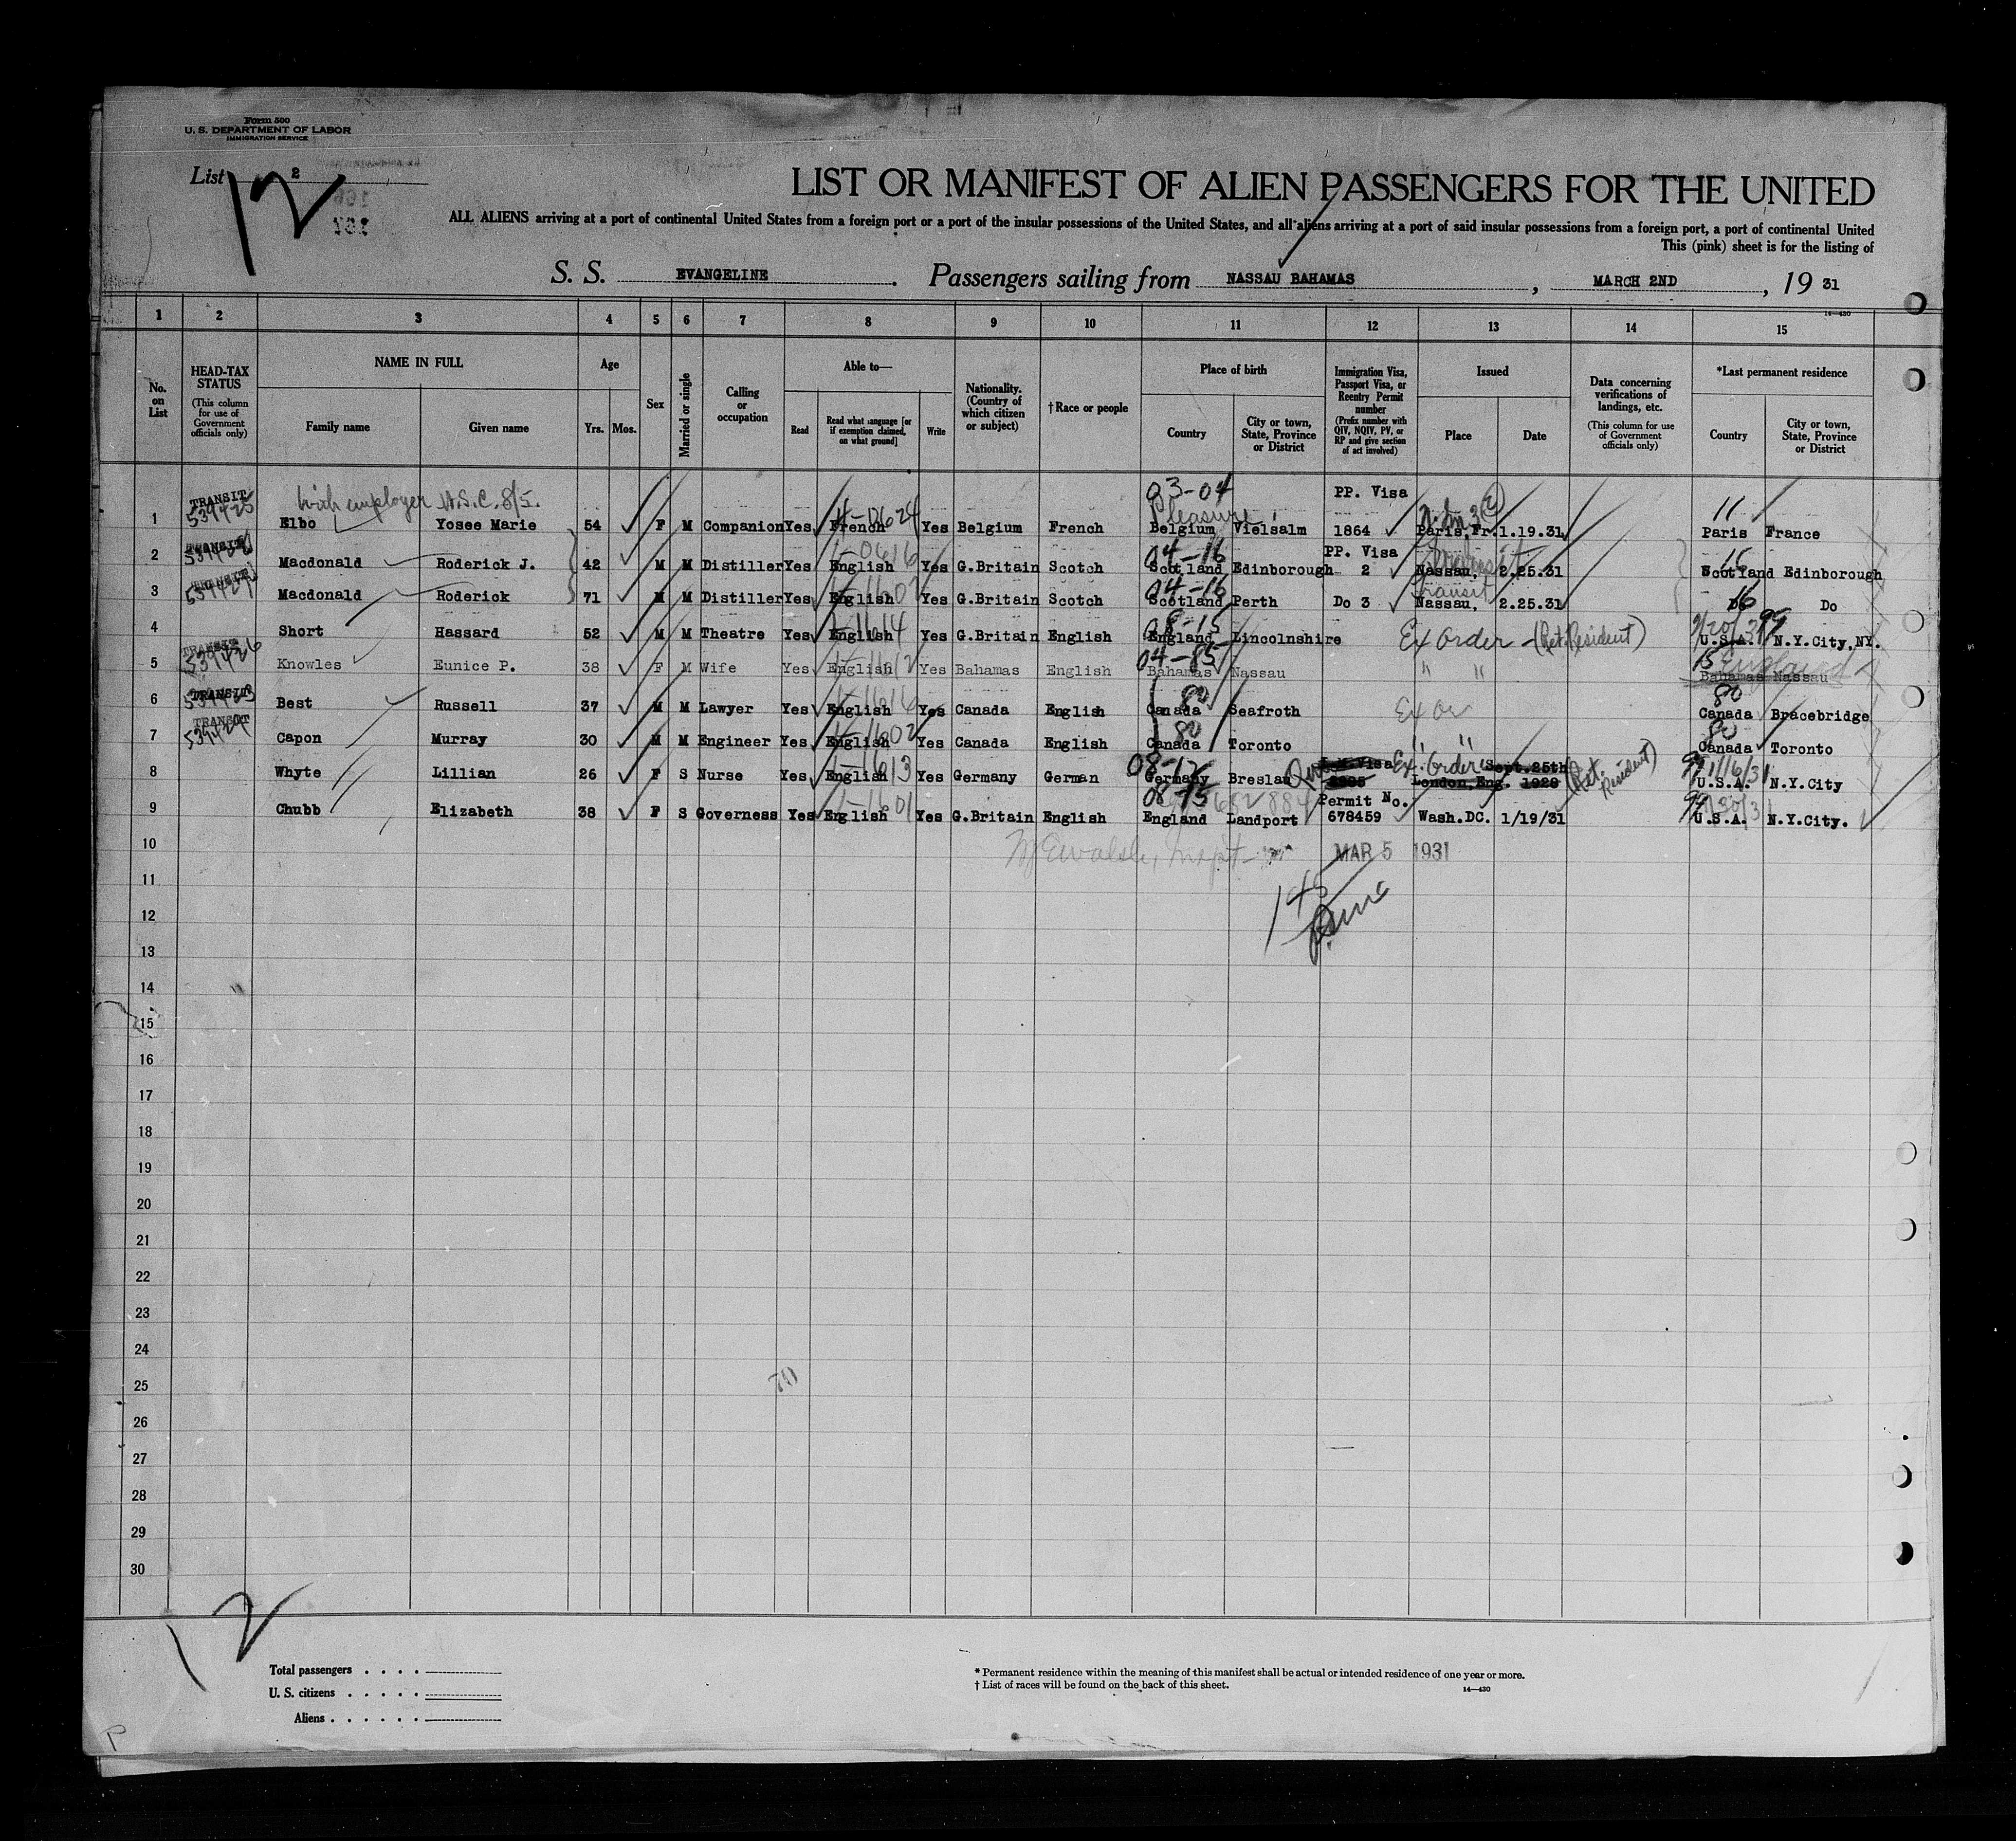 Form 500
U. S. DEPARTMENT OF LABOR
IMMIGRATION SERVICE
List 2
12
LIST OR MANIFEST OF ALIEN PASSENGERS FOR THE UNITED
ALL ALIENS arriving at a port of continental United States from a foreign port or a port of the insular possessions of the United States, and all aliens arriving at a port of said insular possessions from a foreign port, a port of continental United
This (pink) sheet is for the listing of
S. S. EVANGELINE. Passengers sailing from NASSAU BAHAMAS, MARCH 2ND, 19 31
14—430
1 2 3 4 5 6 7 8 9 10 11 12 13 14 15
No. on List
HEAD-TAX STATUS (This column for use of Government officials only)
NAME IN FULL
Family name Given name
Age
Yrs. Mos.
Sex
Married or single
Calling or occupation
Able to—
Read
Read what language [or if exemption claimed, on what ground]
Write
Nationality. (Country of which citizen or subject)
†Race or people
Place of birth
Country
City or town, State, Province or District
Immigration Visa, Passport Visa, or Reentry Permit number (Prefix number with QIV, NQIV, PV, or RP and give section of act involved)
Issued
Place Date
Data concerning verifications of landings, etc. (This column for use of Government officials only)
*Last permanent residence
Country
City or town, State, Province or District
TRANSIT with employer 03-04 PP. Visa
1 539425 Elbo Yosee Marie 54 F M Companion Yes French Yes Belgium French Belgium Pleasure Vielsalm 1864 Paris, Fr. 1.19.31 11 Paris France
TRANSIT 04-16 PP. Visa 16
2 Macdonald Roderick J. 42 M M Distiller Yes English Yes G.Britain Scotch Scotland Edinborough 2 Nassau, 2.25.31 Scotland Edinborough
TRANSIT 04-16 transit 16
3 Macdonald Roderick 71 M M Distiller Yes English Yes G.Britain Scotch Scotland Perth Do 3 Nassau, 2.25.31 Do
08-15
4 Short Hassard 52 M M Theatre Yes English Yes G.Britain English England Lincolnshire Ex Order - (Ret. Resident) 99 U.S.A. N.Y.City,NY.
TRANSIT 539426 04-85 15 England
5 Knowles Eunice P. 38 F M Wife Yes English Yes Bahamas English Bahamas Nassau " " Bahamas Nassau
TRANSIT 80 80
6 539423 Best Russell 37 M M Lawyer Yes English Yes Canada English Canada Seafroth Ex Or Canada Bracebridge
TRANSIT 80 80
7 539424 Capon Murray 30 M M Engineer Yes English Yes Canada English Canada Toronto " " Canada Toronto
08-12 Visa Ex. Order Sept.25th (Ret. Resident) 99
8 Whyte Lillian 26 F S Nurse Yes English Yes Germany German Germany Breslau London, Eng. 1928 U.S.A. N.Y.City
08-15 Permit No. 99
9 Chubb Elizabeth 38 F S Governess Yes English Yes G.Britain English England Landport 678459 Wash.DC. 1/19/31 U.S.A. N.Y.City.
10 MAR 5 1931
11
12
13
14
15
16
17
18
19
20
21
22
23
24
25
26
27
28
29
30
12
Total passengers
U. S. citizens
Aliens
* Permanent residence within the meaning of this manifest shall be actual or intended residence of one year or more.
† List of races will be found on the back of this sheet.
14—430